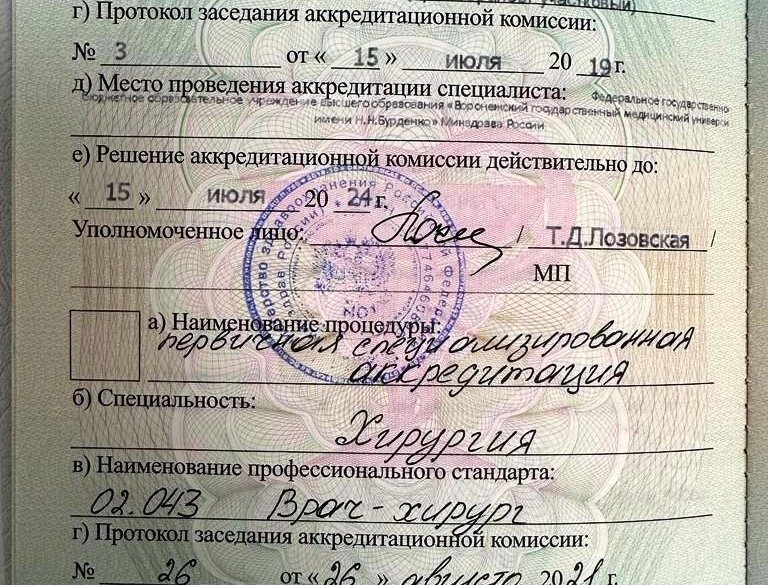 участковый)
г) Протокол заседания аккредитационной комиссии:
№ 3 от « 15 » ИЮЛЯ 20 19 г.
д) Место проведения аккредитации специалиста: Федеральное государственно
бюджетное образовательное учреждение высшего образования «Воронежский государственный медицинский универси
имени Н.Н.Бурденко» Минздрава России
е) Решение аккредитационной комиссии действительно до:
« 15 » ИЮЛЯ 20 24 г.
Уполномоченное лицо: / Т.Д.Лозовская /
МП
а) Наименование процедуры:
первичная специализированная
аккредитация
б) Специальность:
Хирургия
в) Наименование профессионального стандарта:
02.043 Врач-хирург
г) Протокол заседания аккредитационной комиссии:
№ 26 от « 26 » августа 2021 г.